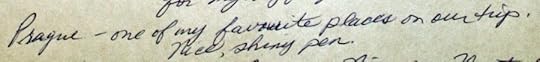 for my
Prague - one of my favourite places on our trip.
Nice, shiny pen.